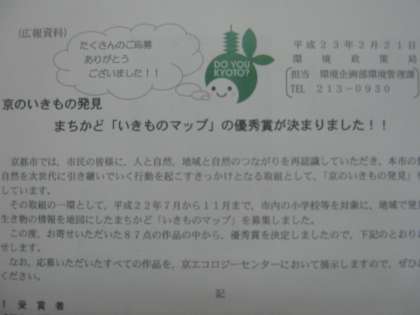 （広報資料）
たくさんのご応募
ありがとう
ございました！！
DO YOU
KYOTO?
平成２３年２月２１日
環境政策局
担当 環境企画部環境管理課
TEL ２１３-０９３０
京のいきもの発見
まちかど「いきものマップ」の優秀賞が決まりました！！
京都市では、市民の皆様に、人と自然、地域と自然のつながりを再認識していただき、本市の
自然を次世代に引き継いでいく行動を起こすきっかけとなる取組として、「京のいきもの発見」
しています。
その取組の一環として、平成２２年７月から１１月まで、市内の小学校等を対象に、地域で発見
生き物の情報を地図にしたまちかど「いきものマップ」を募集しました。
この度、お寄せいただいた８７点の作品の中から、優秀賞を決定しましたので、下記のとおり
せします。
なお、応募いただいたすべての作品を、京エコロジーセンターにおいて展示しますので、ぜひ
ください。
記
１ 受賞者